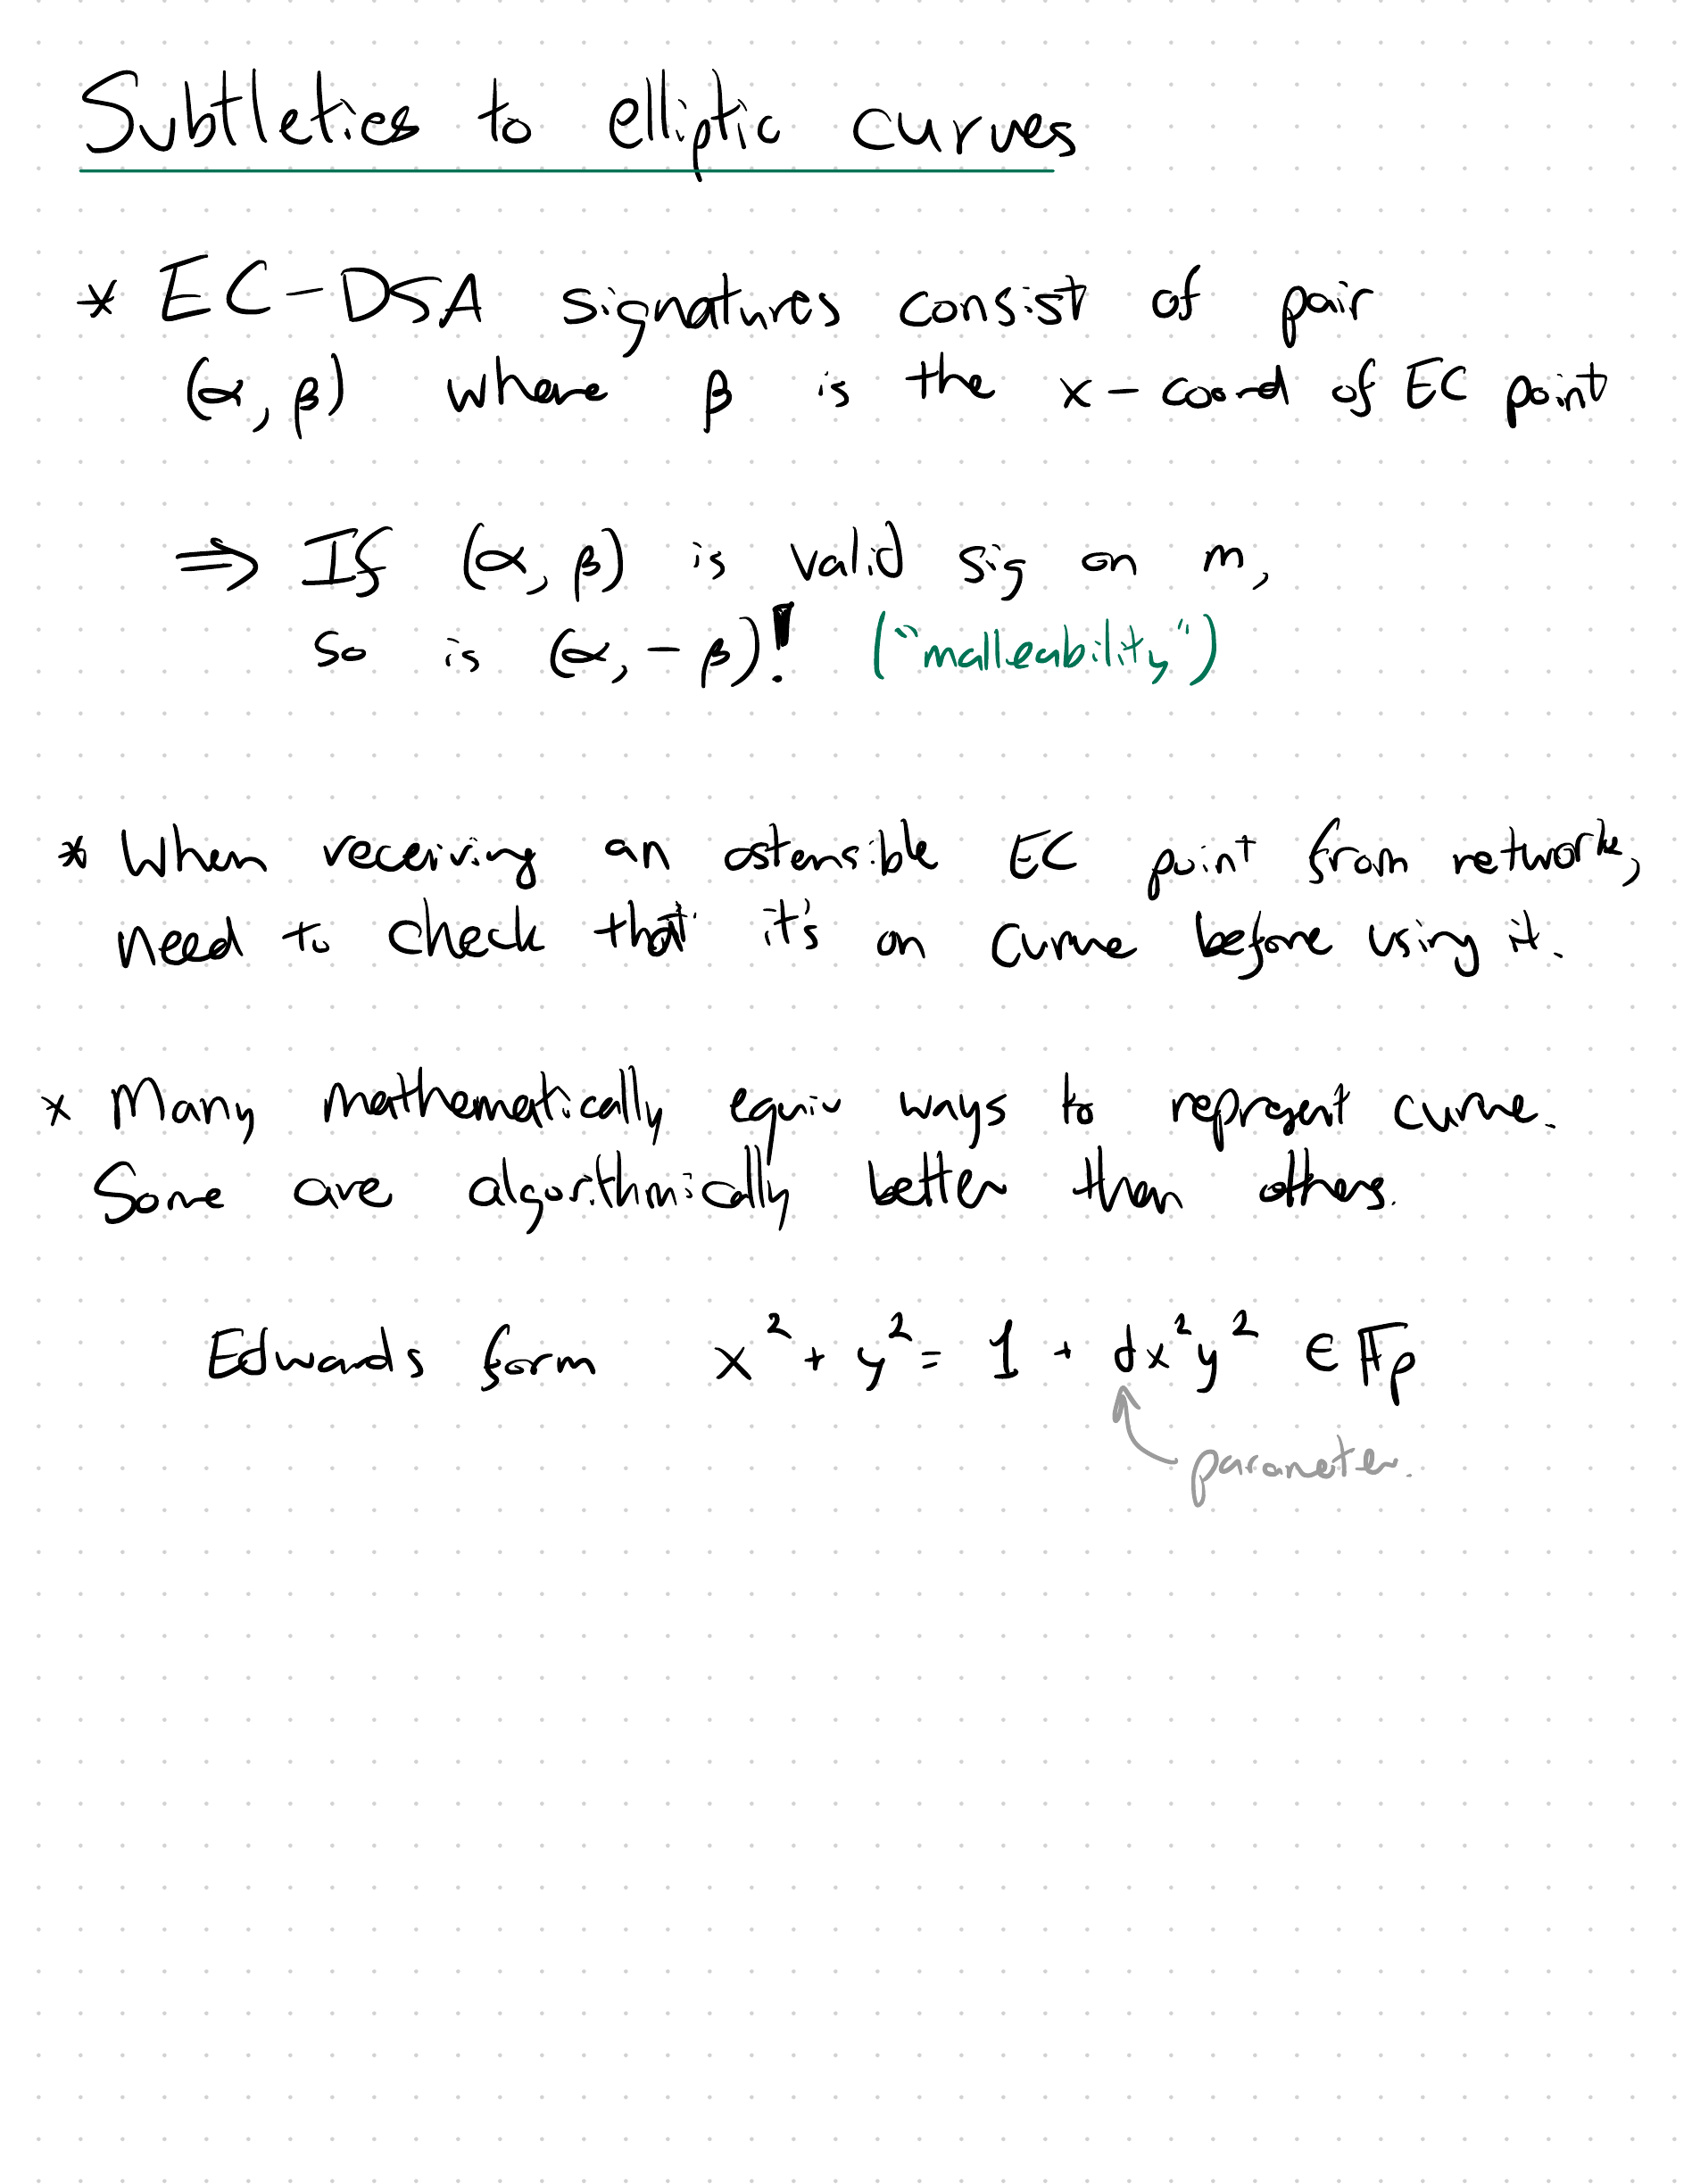 Subtleties to elliptic curves
* EC-DSA signatures consist of pair
(α, β) where β is the x-coord of EC point
⇒ If (α, β) is valid sig on m,
so is (α, -β)! ("malleability")
* When receiving an ostensible EC point from network,
need to check that it's on curve before using it.
* Many mathematically equiv ways to represent curve.
Some are algorithmically better than others.
Edwards form x² + y² = 1 + dx²y² ∈ 𝔽p
parameter.